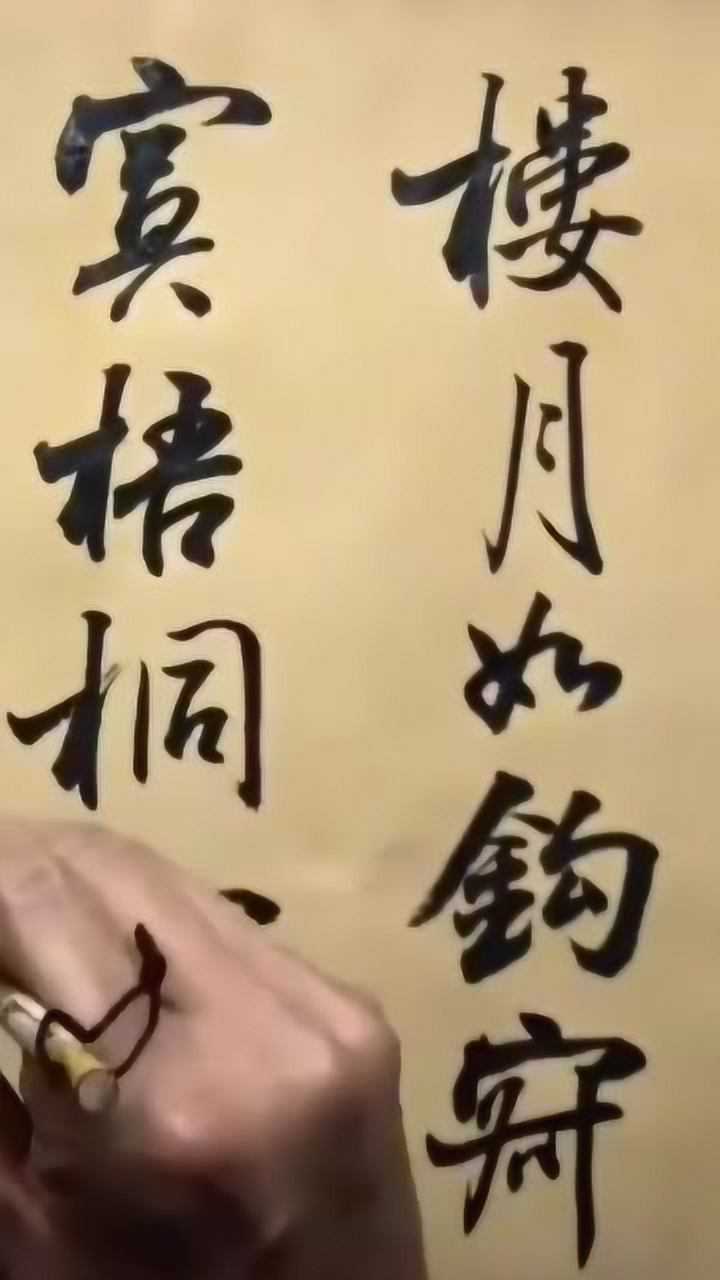 樓月如鈎寂
寞梧桐